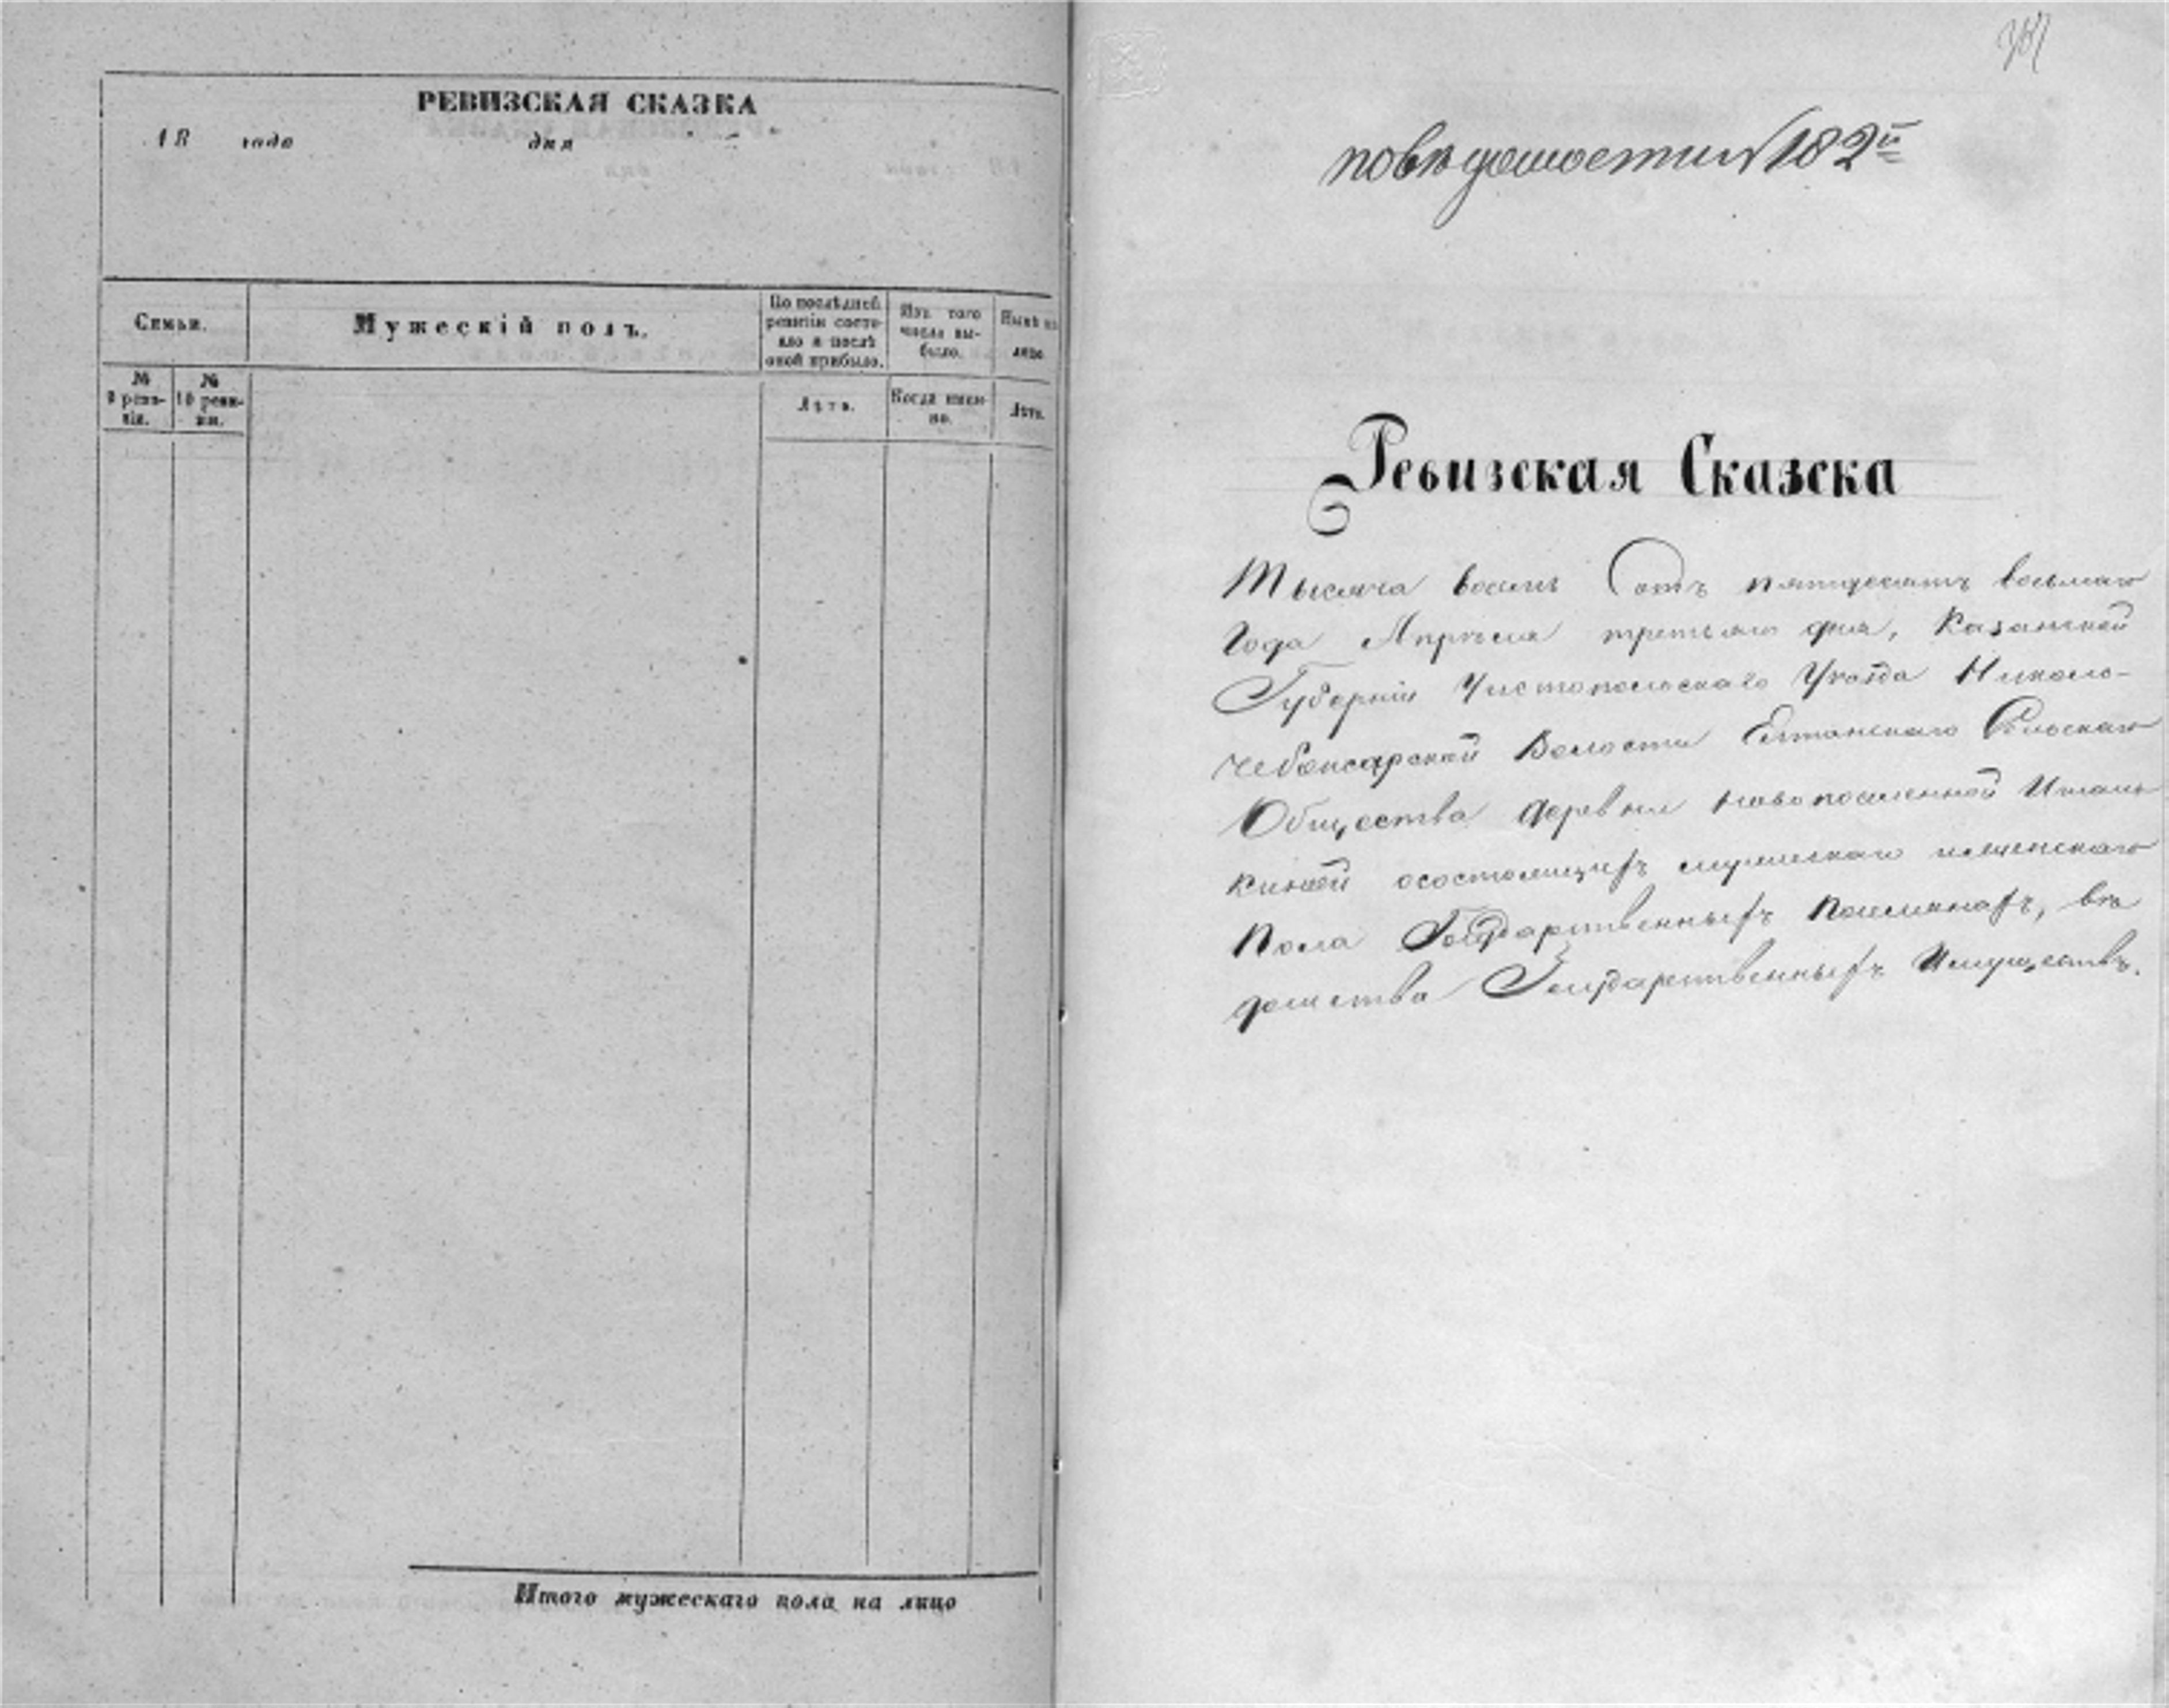 РЕВИЗСКАЯ СКАЗКА
18 года дня
Семьи.
Мужескій полъ.
По послѣдней
ревизіи состо-
яло и послѣ
оной прибыло.
Изъ того
числа вы-
было.
Нынѣ на
лицо.
№
9 реви-
зіи.
№
10 реви-
зіи.
Лѣта.
Когда имен-
но.
Лѣта.
Итого мужескаго пола на лицо
повѣдомости № 182й
Ревизская Сказска
Тысяча восемь Сотъ пятдесятъ восьмаго
Года Апрѣля третьяго дня, Казанской
Губерніи Чистопольскаго Уѣзда Николь-
Чебоксарской Волости Елтанскаго Сельскаго
Общества деревни Новопоселенной
осостоящихъ мужескаго иженскаго
Пола Государственныхъ Поселянахъ, вѣ
домства Государственныхъ Имуществъ.